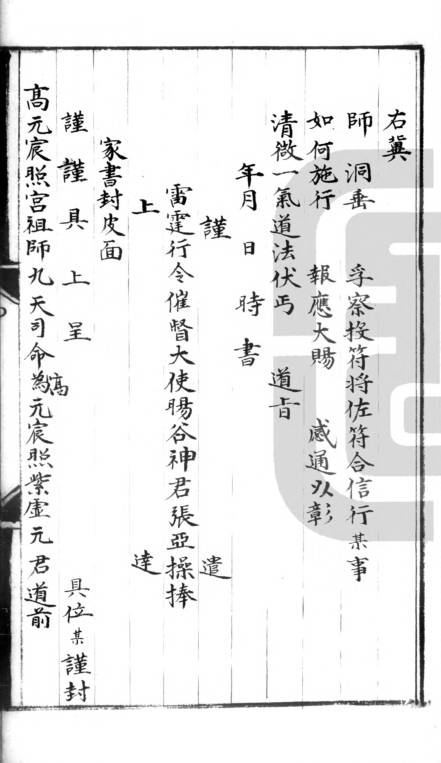 右冀
師　洞垂　孚察投符将佐符合信行某事
如何施行　報應大賜　感通以彰
清微一氣道法伏丐　道旨
年月日時書
謹　遣
雷霆行令催督大使暘谷神君張亞操捧
上　達
家書封皮面
謹謹具上呈　具位某謹封
高元宸照宫祖師九天司命為高元宸照紫虛元君道前